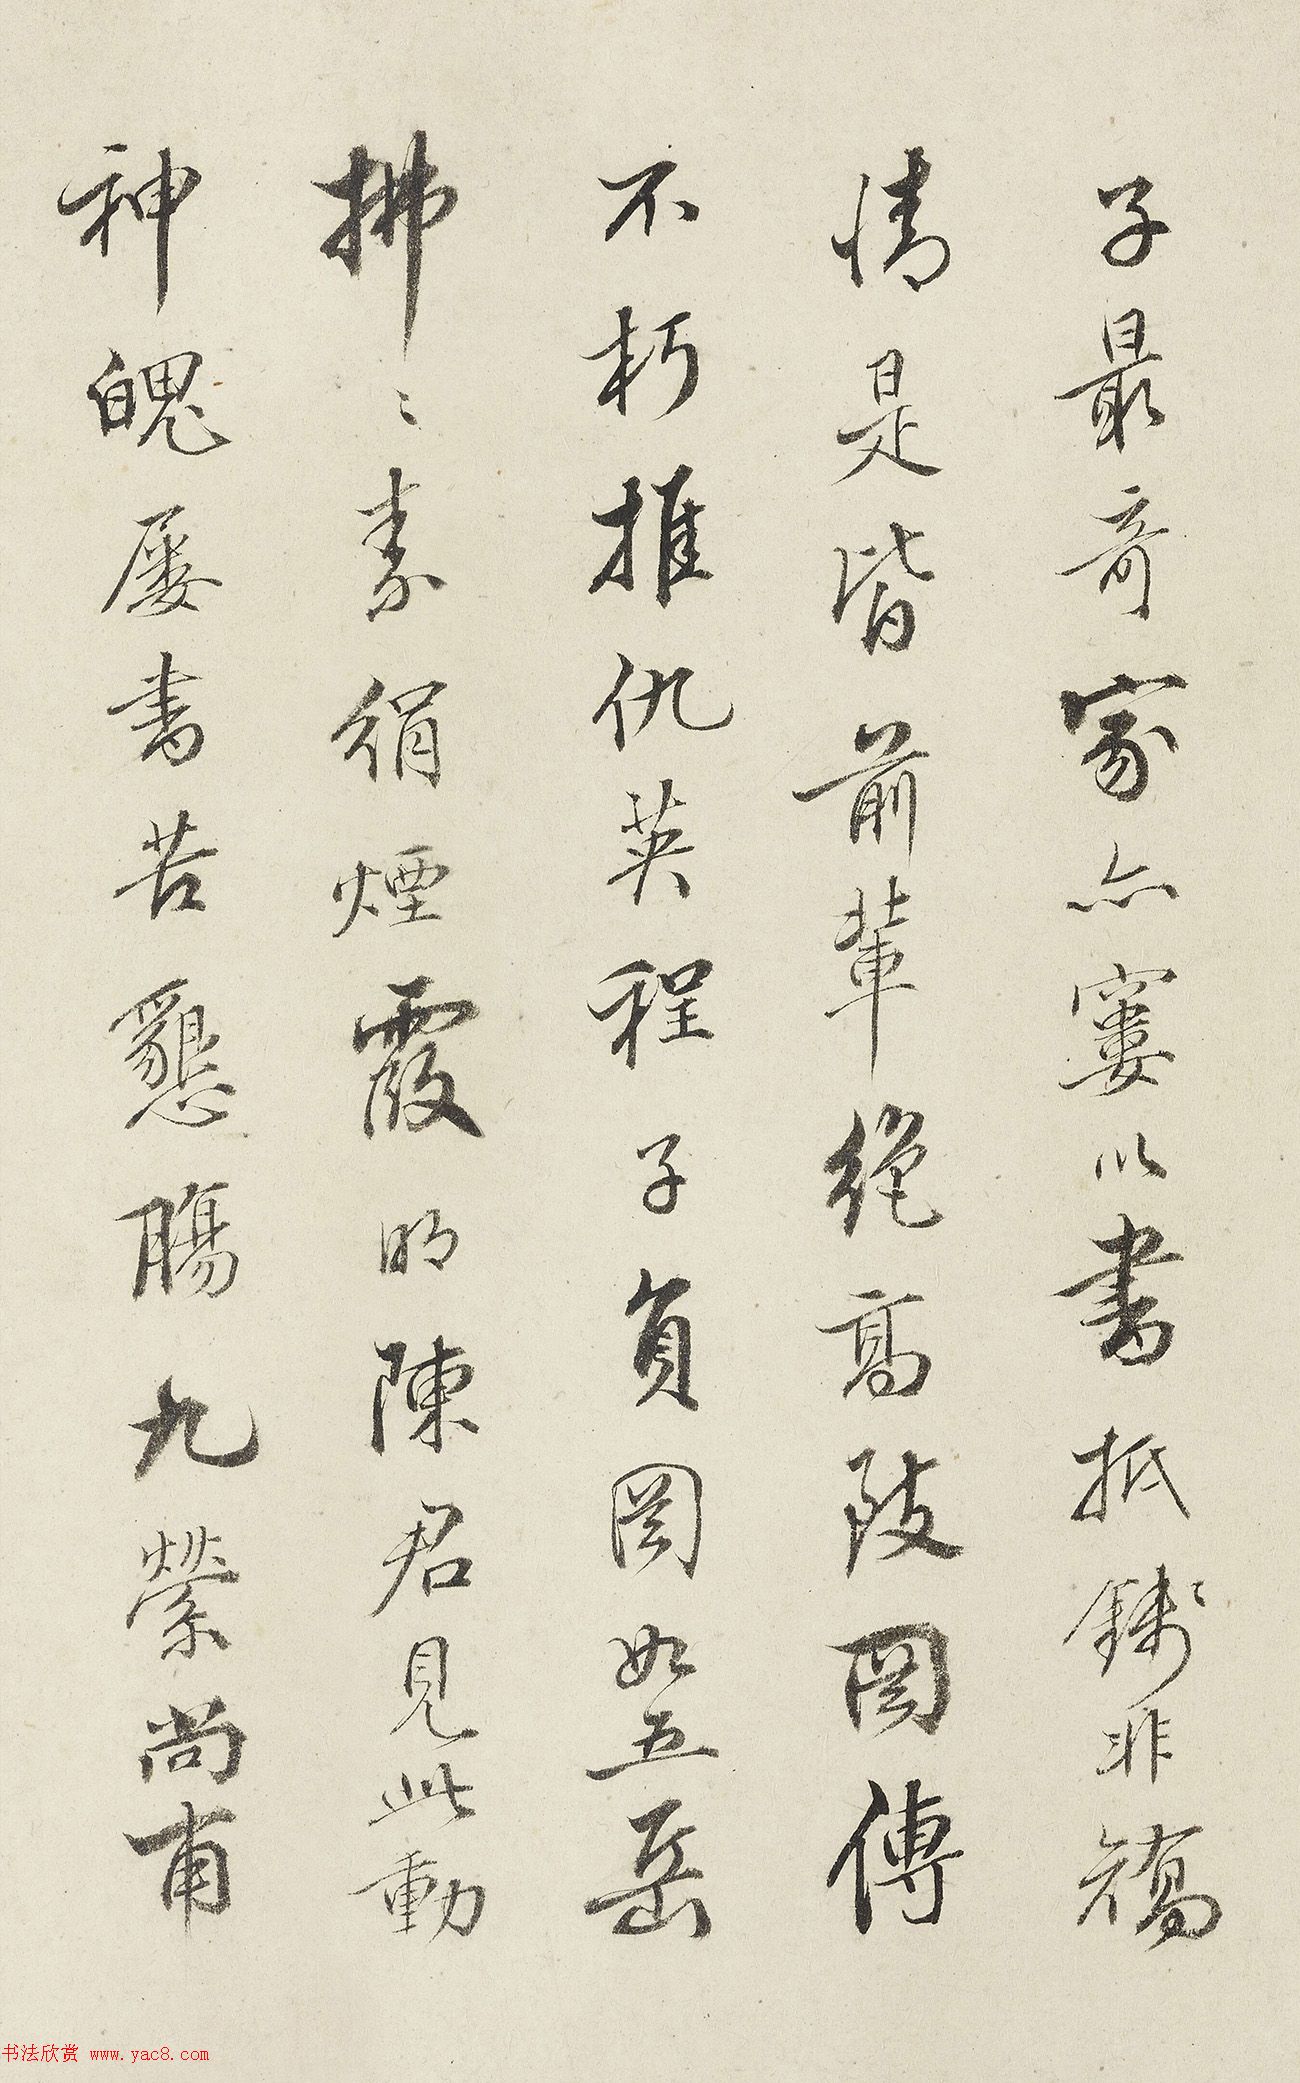 子最奇家亦窶以書抵錢〻非矯
情是皆前輩絕高陂圖傳
不朽推仇英程子負圖如五岳
拂〻〻素絹煙霞明陳君見此動
神魄屡書苦懇腸九縈尚甫
书法欣赏 www.yac8.com